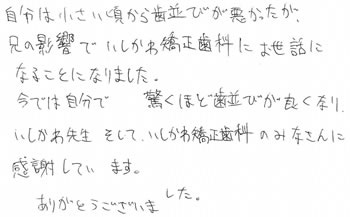 自分は小さい頃から歯並びが悪かったが、
兄の影響でいしかわ矯正歯科にお世話に
なることになりました。
今では自分で 驚くほど歯並びが良くなり、
いしかわ先生 そして、いしかわ矯正歯科のみなさんに
感謝しています。
ありがとうございました。